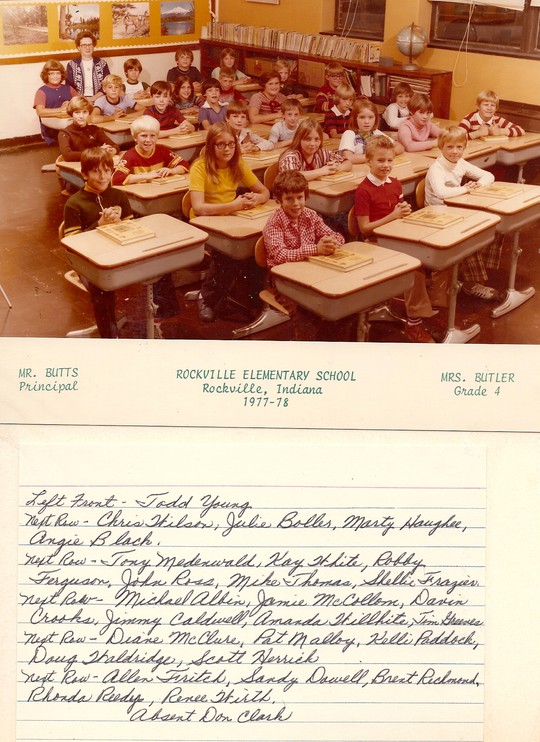 MR. BUTTS
Principal
ROCKVILLE ELEMENTARY SCHOOL
Rockville, Indiana
1977-78
MRS. BUTLER
Grade 4
Left Front - Todd Young
Next Row - Chris Wilson, Julie Boller, Marty Haughee,
Angie Black.
Next Row - Tony Medenwald, Kay White, Robby
Ferguson, John Ross, Mike Thomas, Shellie Frazier.
Next Row - Michael Albin, Jamie McCollom, Davin
Crooks, Jimmy Caldwell, Amanda Willhite, Tim Greeves
Next Row - Diane McClure, Pat Malloy, Kelli Paddock,
Doug Waldridge, Scott Herrich
Next Row - Allen Fritch, Sandy Dowell, Brent Richmond,
Rhonda Reedy, Renee Wirth.
Absent Don Clark